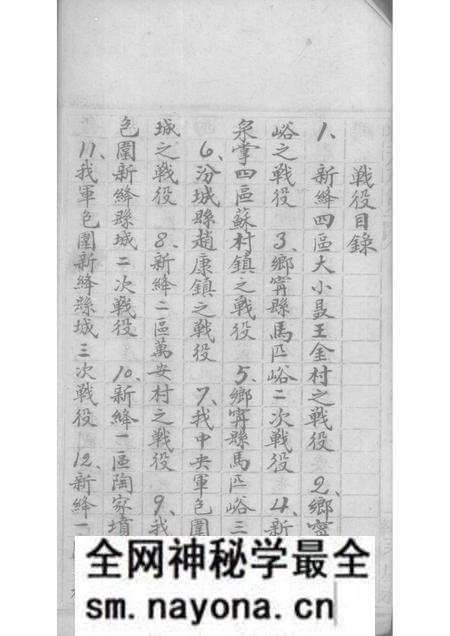 戰役目錄
1、新絳四區大小聶王金村之戰役 2、鄉寧
峪之戰役 3、鄉寧縣馬匹峪二次戰役 4、新
泉掌四區蘇村鎮之戰役 5、鄉寧縣馬匹峪三
6、汾城縣趙康鎮之戰役 7、我中央軍包圍
城之戰役 8、新絳二區萬安村之戰役 9、我
包圍新絳縣城二次戰役 10、新絳一區陶家墳
11、我軍包圍新絳縣城三次戰役 12、新絳一
全网神秘学最全
sm.nayona.cn